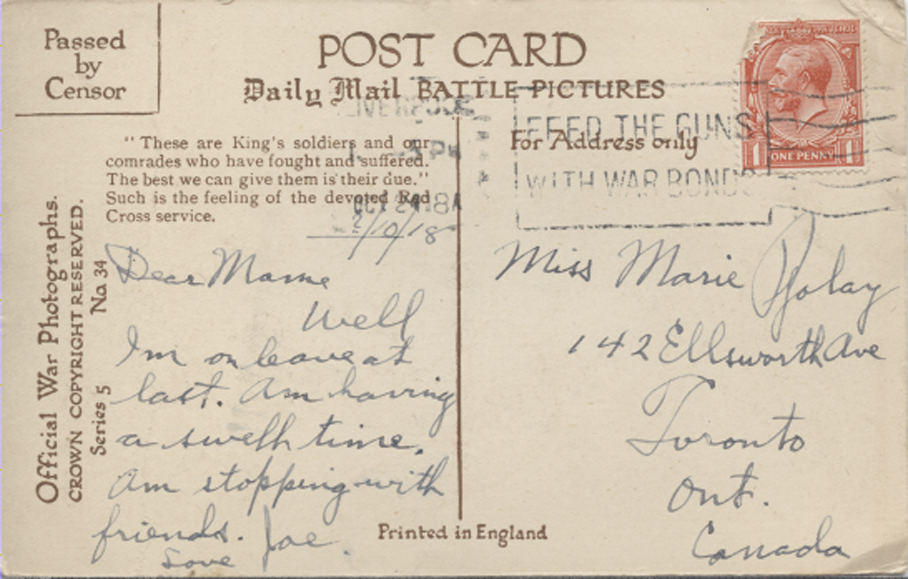 Passed
by
Censor
POST CARD
Daily Mail BATTLE PICTURES
"These are King's soldiers and our
comrades who have fought and suffered.
The best we can give them is their due."
Such is the feeling of the devoted Red
Cross service.
Official War Photographs.
CROWN COPYRIGHT RESERVED.
Series 5 No. 34
For Address only
LIVERPOOL
PM
OCT 2 18
FEED THE GUNS
WITH WAR BONDS
ONE PENNY
1 1
2/10/18
Dear Mame
Well
I'm on leave at
last. Am having
a swell time.
Am stopping with
friends.
Love Joe.
Miss Marie
142 Ellsworth Ave
Toronto
Ont.
Canada
Printed in England